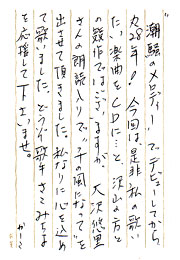 "潮騒のメロディー"でデビューしてから
丸28年! 今回は是非私の歌い
たい楽曲をCDに…と、沢山の方と
の競作ではございますが、大沢悠里
さんの朗読入りで"千の風になって"を
出させて頂きました。私なりに心を込め
て歌いました。どうぞ歌手さこみちよ
を応援して下さいませ。
かしこ